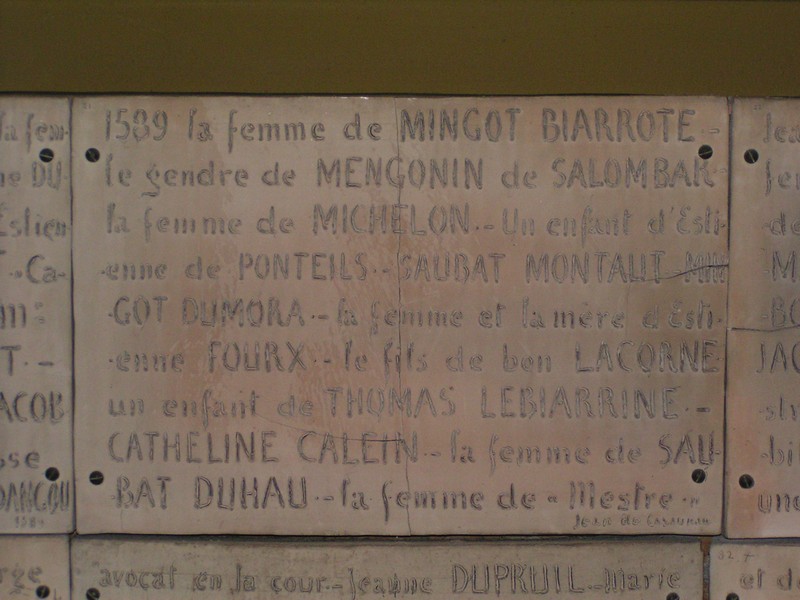 1589 la femme de MINGOT BIARROTE.-
le gendre de MENGONIN de SALOMBAR
la femme de MICHELON.- Un enfant d'Esti-
-enne de PONTEILS.- SAUBAT MONTAUT MIN
-GOT DUMORA.- la femme et la mère d'Esti-
-enne FOURX.- le fils de bon LACORNE
un enfant de THOMAS LEBIARRINE.-
CATHELINE CALEIN.- la femme de SAU-
-BAT DUHAU.- la femme de "Mestre"
Jean de
avocat en la cour.- Jeanne DUPRUIL.- Marie
la fem-
DU-
Estien
- Ca-
T.-
ACOB
sse
DANGOU
Jea
JAC
une
et de